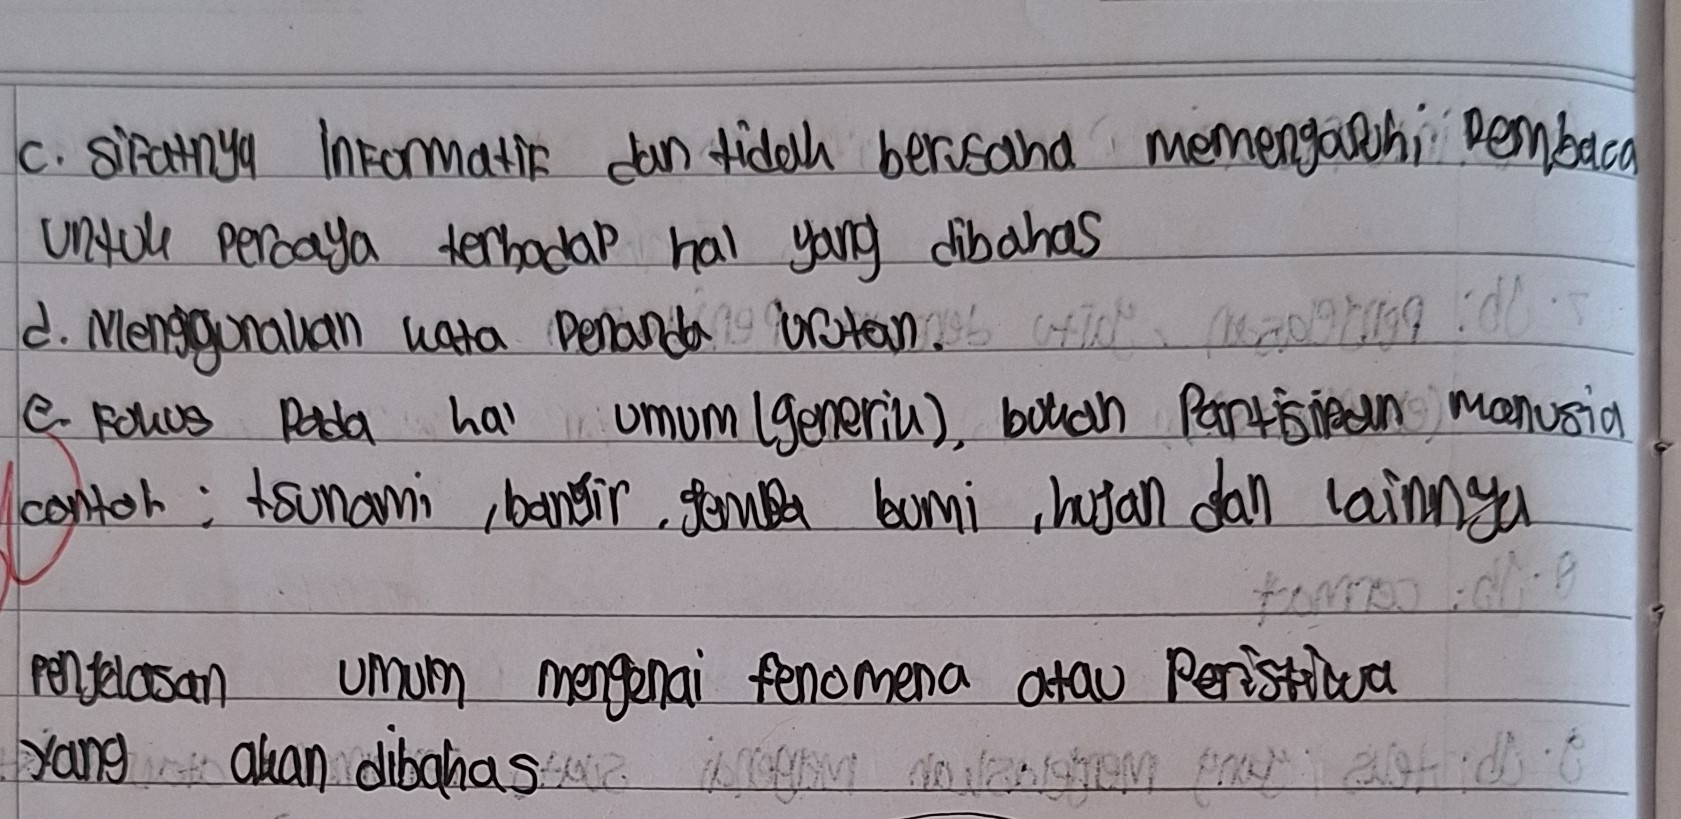 c. sifatnya informatif dan tidak berusaha memengaruhi pembaca
untuk percaya terhadap hal yang dibahas
d. Menggunakan kata penanda urutan.
e. Fokus pada hal umum (generik), bukan Partisipan manusia
contoh : tsunami, banjir, gempa bumi, hujan dan lainnya
penjelasan umum mengenai fenomena atau Peristiwa
yang akan dibahas